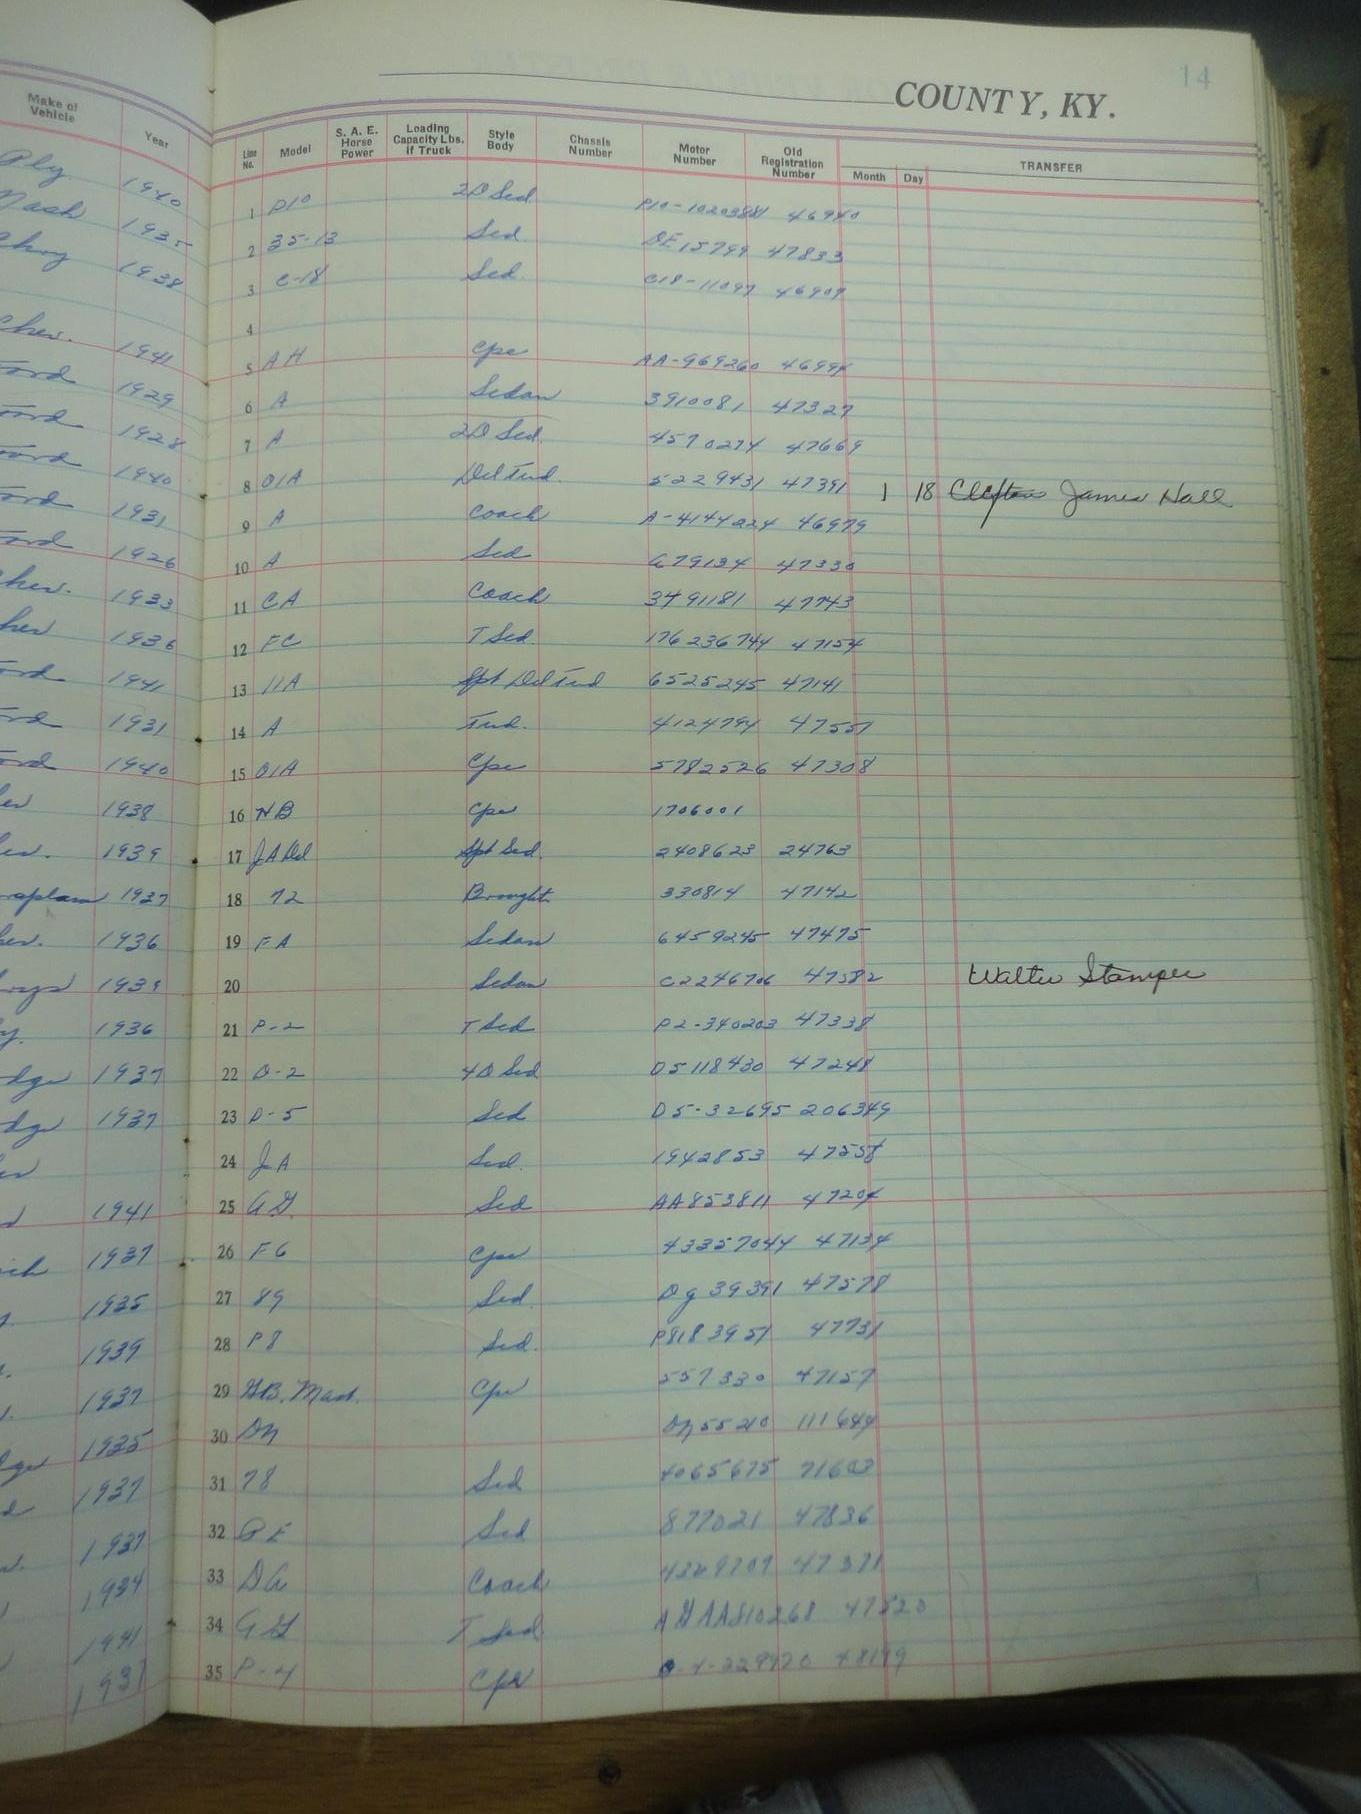 14
COUNTY, KY.
Make of Vehicle Year Line No. Model S. A. E. Horse Power Loading Capacity Lbs. if Truck Style Body Chassis Number Motor Number Old Registration Number Month Day TRANSFER
Ply 1940 1 P10 2D Sed P10-1020388 46940
Nash 1935 2 35-13 Sed 47833
1938 3 C-18 Sed C18-11097 46909
4
Chev. 1941 5 AH Cpe AA-969260 46994
Ford 1929 6 A Sedan 3910081 47327
Ford 1928 7 A 2D Sed. 4570274 47669
Ford 1940 8 01A Del Tud. 5229431 47391 1 18 James Hall
Ford 1931 9 A Coach A-4144224 46979
Ford 1926 10 A Sed 679134 47330
Chev. 1933 11 CA Coach 3491181 47743
1936 12 FC T Sed. 176236744 47154
1941 13 11A Spt Del Tud 6525245 47141
1931 14 A Tud. 4124794 47557
1940 15 01A Cpe 5782526 47308
1938 16 HB Cpe 1706001
1939 17 JA Del Spt Sed. 2408623 24763
1937 18 72 330814 47142
1936 19 FA Sedan 6459245 47475
1939 20 Sedan C2246706 47582 Walter Stamper
1936 21 P-2 T Sed P2-340203 47338
1937 22 D-2 4D Sed D5118430 47248
1937 23 D-5 Sed D5-32695 206349
24 JA Sed. 1942853 47258
1941 25 AG. Sed AA853811 47204
1937 26 F6 Cpe 43357044 47134
1935 27 89 Sed. 39391 47578
1939 28 P8 Sed. P8183951 47731
1937 29 Mast. Cpe 557330 47157
1935 30 55210 111644
1937 31 78 Sed 4065675 71603
1937 32 Sed 877021 47836
1934 33 DA Coach 4369709 47371
1941 34 T Sed 47520
1937 35 P-4 Cpe 48119